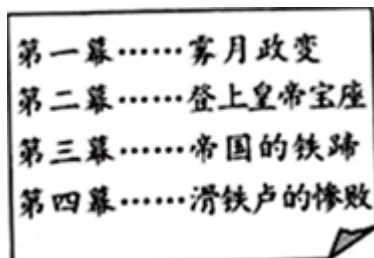 第一幕……雾月政变
第二幕……登上皇帝宝座
第三幕……帝国的铁蹄
第四幕……滑铁卢的惨败